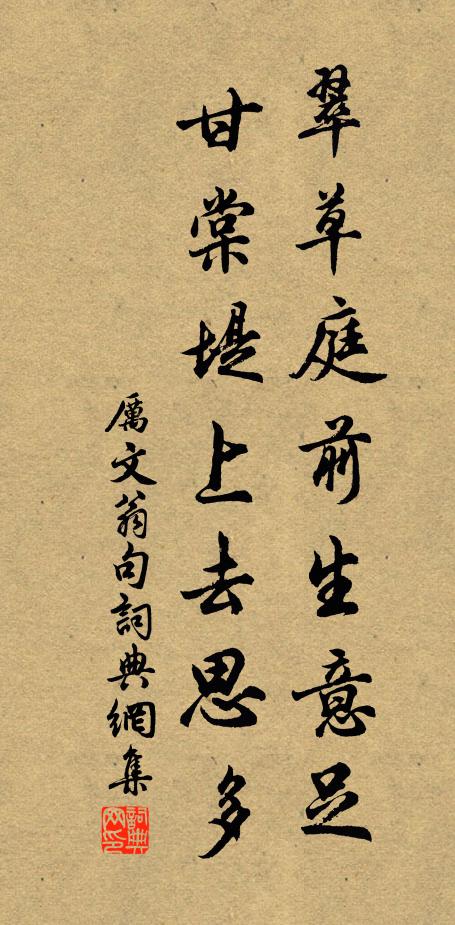 翠草庭前生意足
甘棠堤上去思多
厲文翁句詞典網集
詞典網印